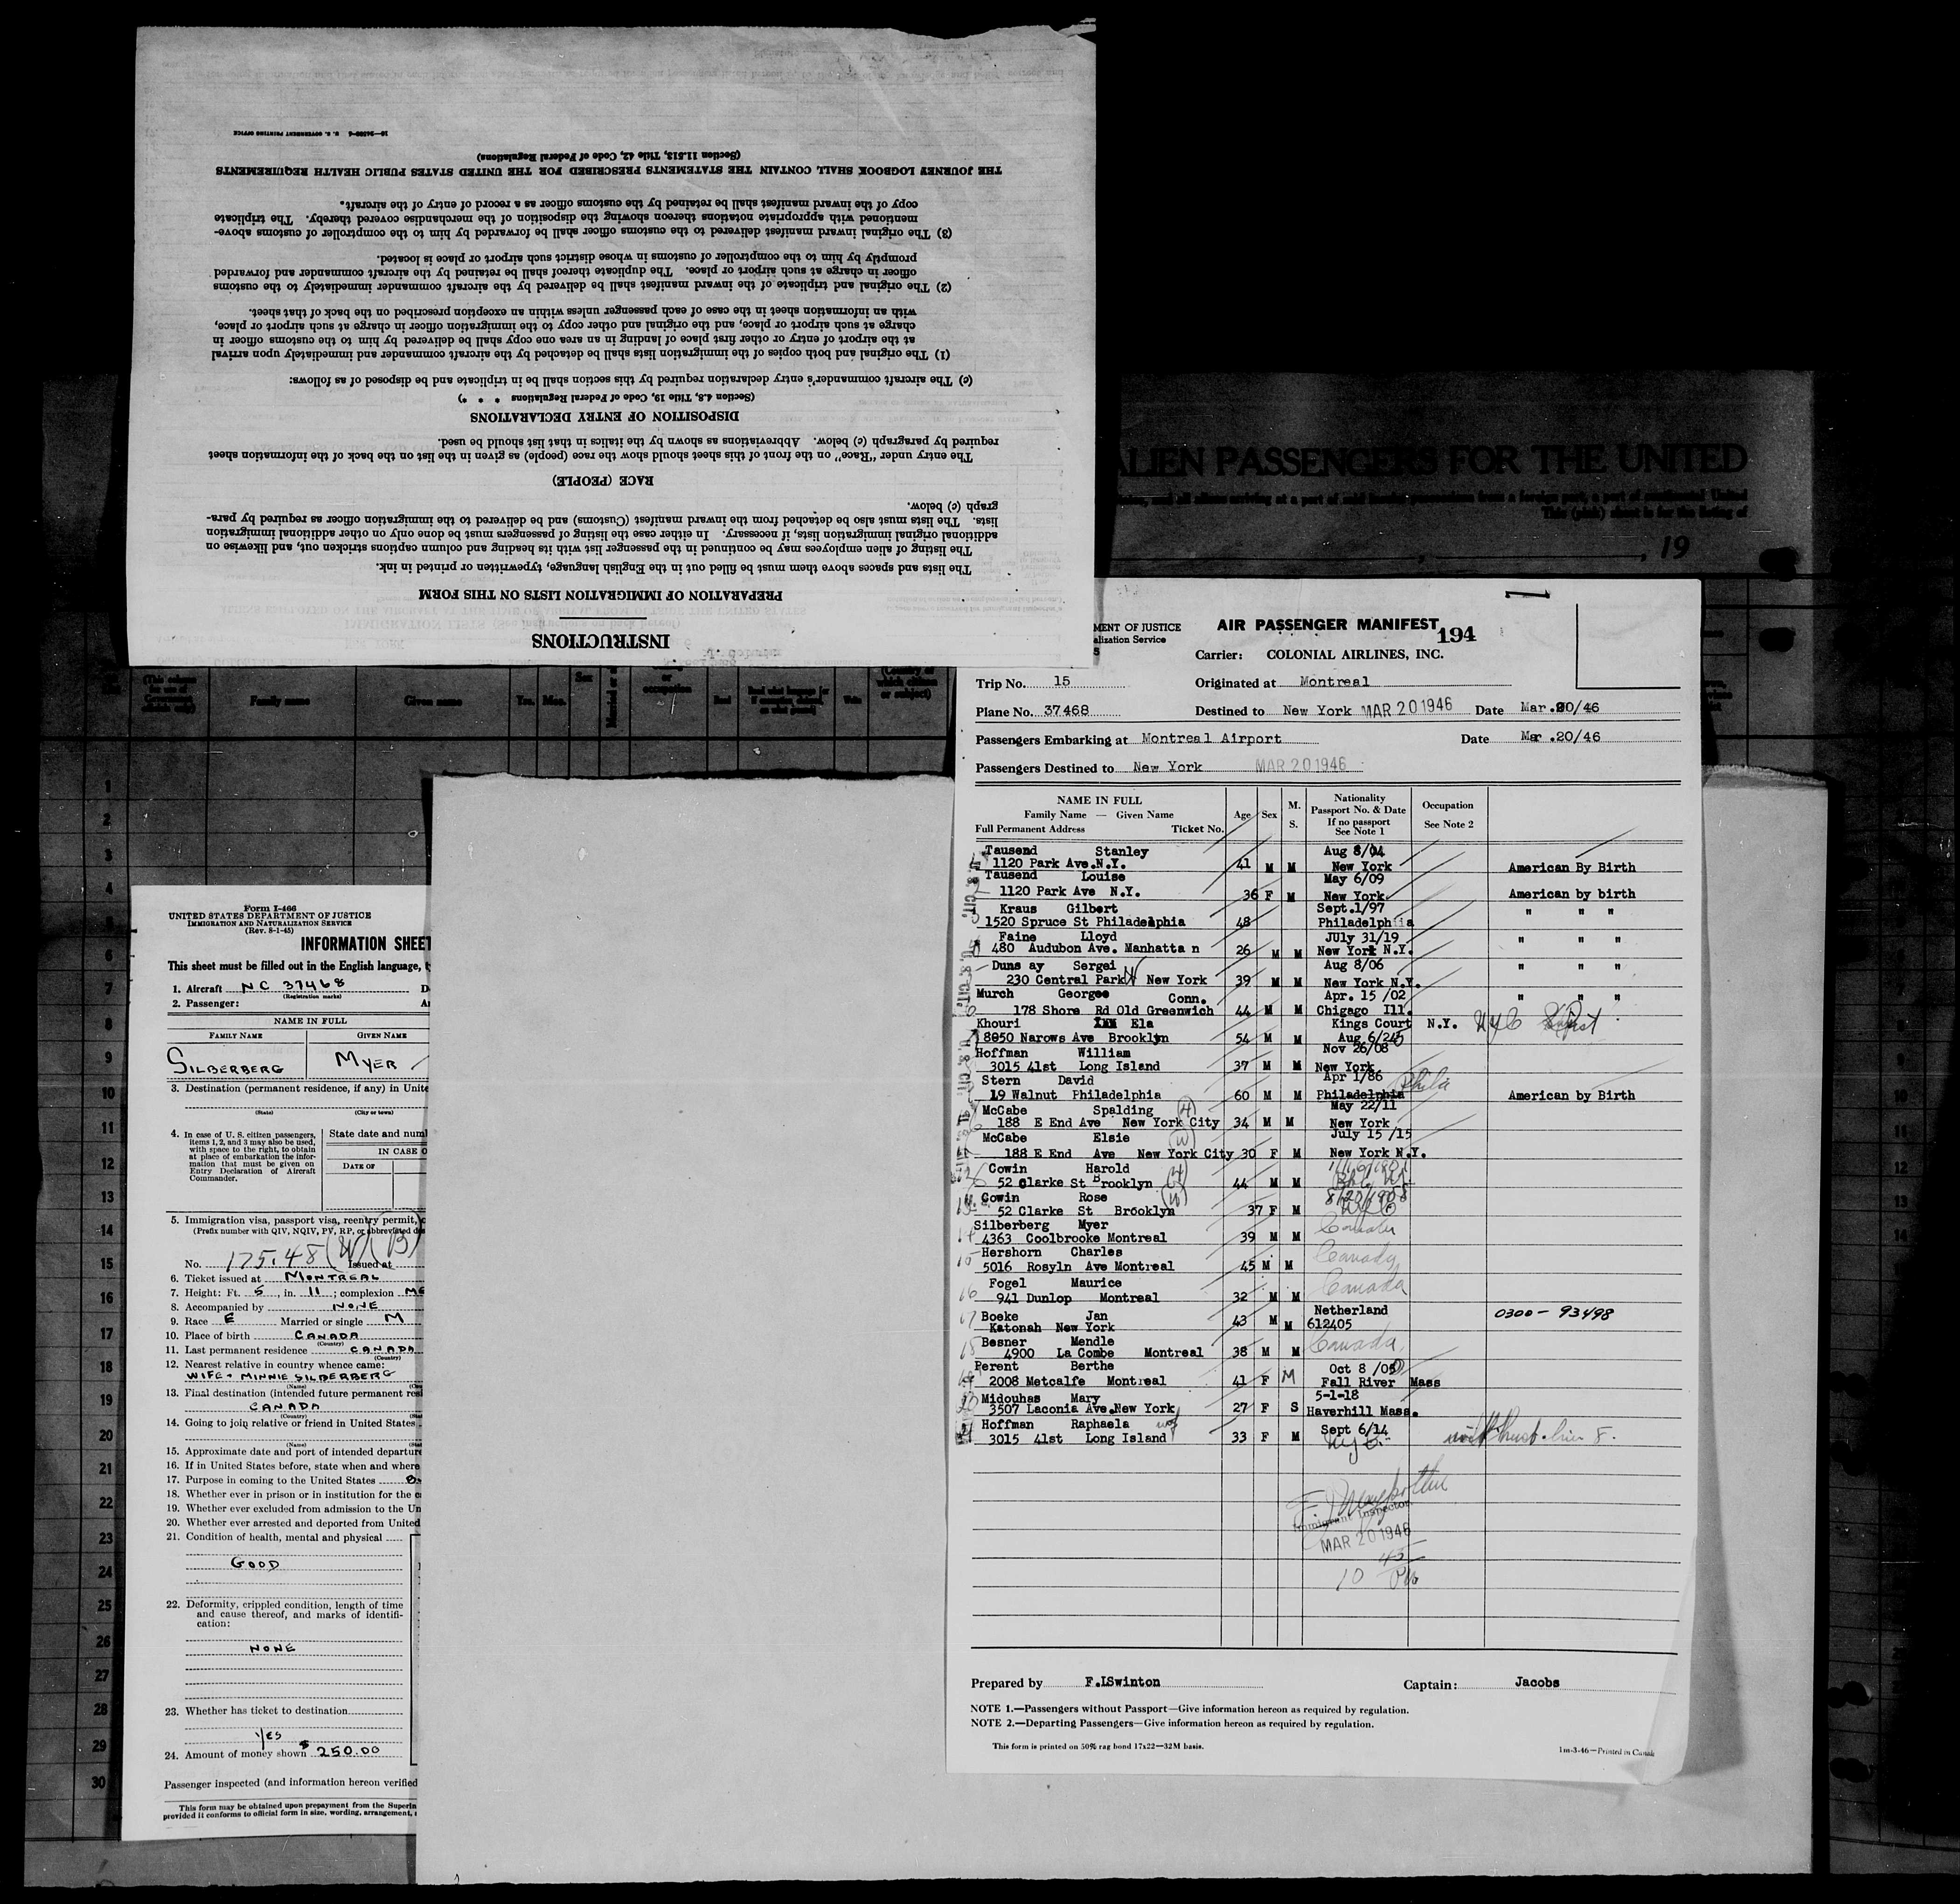 INSTRUCTIONS
PREPARATION OF IMMIGRATION LISTS ON THIS FORM
The lists and spaces above them must be filled out in the English language, typewritten or printed in ink.
The listing of alien employees may be continued in the passenger list with its heading and column captions stricken out, and likewise on
additional original immigration lists, if necessary. In either case the listing of passengers must be done only on other additional immigration
lists. The lists must also be detached from the inward manifest (Customs) and be delivered to the immigration officer as required by para-
graph (c) below.
RACE (PEOPLE)
The entry under "Race" on the front of this sheet should show the race (people) as given in the list on the back of the information sheet
required by paragraph (c) below. Abbreviations as shown by the italics in that list should be used.
DISPOSITION OF ENTRY DECLARATIONS
(Section 4.8, Title 19, Code of Federal Regulations * * *)
(c) The aircraft commander's entry declaration required by this section shall be in triplicate and be disposed of as follows:
(1) The original and both copies of the immigration lists shall be detached by the aircraft commander and immediately upon arrival
at the airport of entry or other first place of landing in an area one copy shall be delivered by him to the customs officer in
charge at such airport or place, and the original and other copy to the immigration officer in charge at such airport or place,
with an information sheet in the case of each passenger unless within an exception prescribed on the back of that sheet.
(2) The original and triplicate of the inward manifest shall be delivered by the aircraft commander immediately to the customs
officer in charge at such airport or place. The duplicate thereof shall be retained by the aircraft commander and forwarded
promptly by him to the comptroller of customs in whose district such airport or place is located.
(3) The original inward manifest delivered to the customs officer shall be forwarded by him to the comptroller of customs above-
mentioned with appropriate notations thereon showing the disposition of the merchandise covered thereby. The triplicate
copy of the inward manifest shall be retained by the customs officer as a record of entry of the aircraft.
THE JOURNEY LOGBOOK SHALL CONTAIN THE STATEMENTS PRESCRIBED FOR THE UNITED STATES PUBLIC HEALTH REQUIREMENTS
(Section 11.513, Title 42, Code of Federal Regulations)
U. S. GOVERNMENT PRINTING OFFICE
ALIEN PASSENGERS FOR THE UNITED
This (pink) sheet is for the listing of
, 19
Family name Given name Yrs. Mos. Sex
Form I-466
UNITED STATES DEPARTMENT OF JUSTICE
IMMIGRATION AND NATURALIZATION SERVICE
(Rev. 8-1-45)
INFORMATION SHEET
This sheet must be filled out in the English language,
1. Aircraft NC 37468
(Registration marks)
2. Passenger:
NAME IN FULL
FAMILY NAME GIVEN NAME
SILBERBERG MYER
3. Destination (permanent residence, if any) in Unite
(State) (City or town)
4. In case of U. S. citizen passengers, items 1, 2, and 3 may also be used, with space to the right, to obtain at place of embarkation the information that must be given on Entry Declaration of Aircraft Commander.
State date and num
IN CASE O
DATE OF
5. Immigration visa, passport visa, reentry permit,
(Prefix number with QIV, NQIV, PV, RP, or abbreviated de
No. 175.48 Issued at
6. Ticket issued at MONTREAL
7. Height: Ft. 5, in. 11; complexion ME
8. Accompanied by NONE
9. Race E Married or single M
10. Place of birth CANADA
(Country)
11. Last permanent residence CANADA
(Country)
12. Nearest relative in country whence came:
WIFE - MINNIE SILBERBERG
(Name)
13. Final destination (intended future permanent res
CANADA
(Country)
14. Going to join relative or friend in United States
(Name)
15. Approximate date and port of intended departure
16. If in United States before, state when and where
17. Purpose in coming to the United States
18. Whether ever in prison or in institution for the c
19. Whether ever excluded from admission to the Un
20. Whether ever arrested and deported from United
21. Condition of health, mental and physical
GOOD
22. Deformity, crippled condition, length of time
and cause thereof, and marks of identifi-
cation:
NONE
23. Whether has ticket to destination
YES
24. Amount of money shown $250.00
Passenger inspected (and information hereon verified
This form may be obtained upon prepayment from the Superin
provided it conforms to official form in size, wording, arrangement,
1
2
3
4
5
6
7
8
9
10
11
12
13
14
15
16
17
18
19
20
21
22
23
24
25
26
27
28
29
30
MENT OF JUSTICE
alization Service
AIR PASSENGER MANIFEST 194
Carrier: COLONIAL AIRLINES, INC.
Trip No. 15 Originated at Montreal
Plane No. 37468 Destined to New York MAR 20 1946 Date Mar.20/46
Passengers Embarking at Montreal Airport Date Mar.20/46
Passengers Destined to New York MAR 20 1946
NAME IN FULL
Family Name — Given Name
Full Permanent Address Ticket No.
Age Sex M. S.
Nationality
Passport No. & Date
If no passport
See Note 1
Occupation
See Note 2
Tausend Stanley Aug 8/04
1120 Park Ave.N.Y. 41 M M New York American By Birth
Tausend Louise May 6/09
1120 Park Ave N.Y. 36 F M New York American by birth
Kraus Gilbert Sept.1/97
1520 Spruce St Philadelphia 48 Philadelphia " " "
Faine Lloyd JUly 31/19
480 Audubon Ave. Manhatta n 26 M M New York N.Y. " " "
Duns ay Sergei Aug 8/06
230 Central Park W New York 39 M M New York N.Y. " " "
Murch George Conn. Apr. 15 /02
178 Shore Rd Old Greenwich 44 M M Chigago Ill. " " "
Khouri Ela Kings Court N.Y.
8050 Narows Ave Brooklyn 54 M M Aug 6/24
Hoffman William Nov 26/08
3015 41st Long Island 37 M M New York
Stern David Apr 1/86 Phila
19 Walnut Philadelphia 60 M M Philadelphia American by Birth
McCabe Spalding (H) May 22/11
188 E End Ave New York City 34 M M New York
McCabe Elsie (W) July 15 /15
188 E End Ave New York City 30 F M New York N.Y.
Cowin Harold (H)
52 Clarke St Brooklyn 44 M M
Cowin Rose (W) 8/20/1908
52 Clarke St Brooklyn 37 F M NYC
Silberberg Myer Canada
4363 Coolbrooke Montreal 39 M M
Hershorn Charles Canada
5016 Rosyln Ave Montreal 45 M M
Fogel Maurice Canada
941 Dunlop Montreal 32 M M
Boeke Jan Netherland 0300-93498
Katonah New York 43 M M 612405
Besner Mendle Canada
4900 La Combe Montreal 38 M M
Perent Berthe Oct 8 /05
2008 Metcalfe Montreal 41 F M Fall River Mass
Midouhas Mary 5-1-18
3507 Laconia Ave.New York 27 F S Haverhill Mass.
Hoffman Raphaela Sept 6/14
3015 41st Long Island 33 F M NYC with husb. line 8.
Immigrant Inspector
MAR 20 1946
Prepared by F.LSwinton Captain: Jacobs
NOTE 1.—Passengers without Passport—Give information hereon as required by regulation.
NOTE 2.—Departing Passengers—Give information hereon as required by regulation.
This form is printed on 50% rag bond 17x22—32M basis. 1m-3-46—Printed in Canada